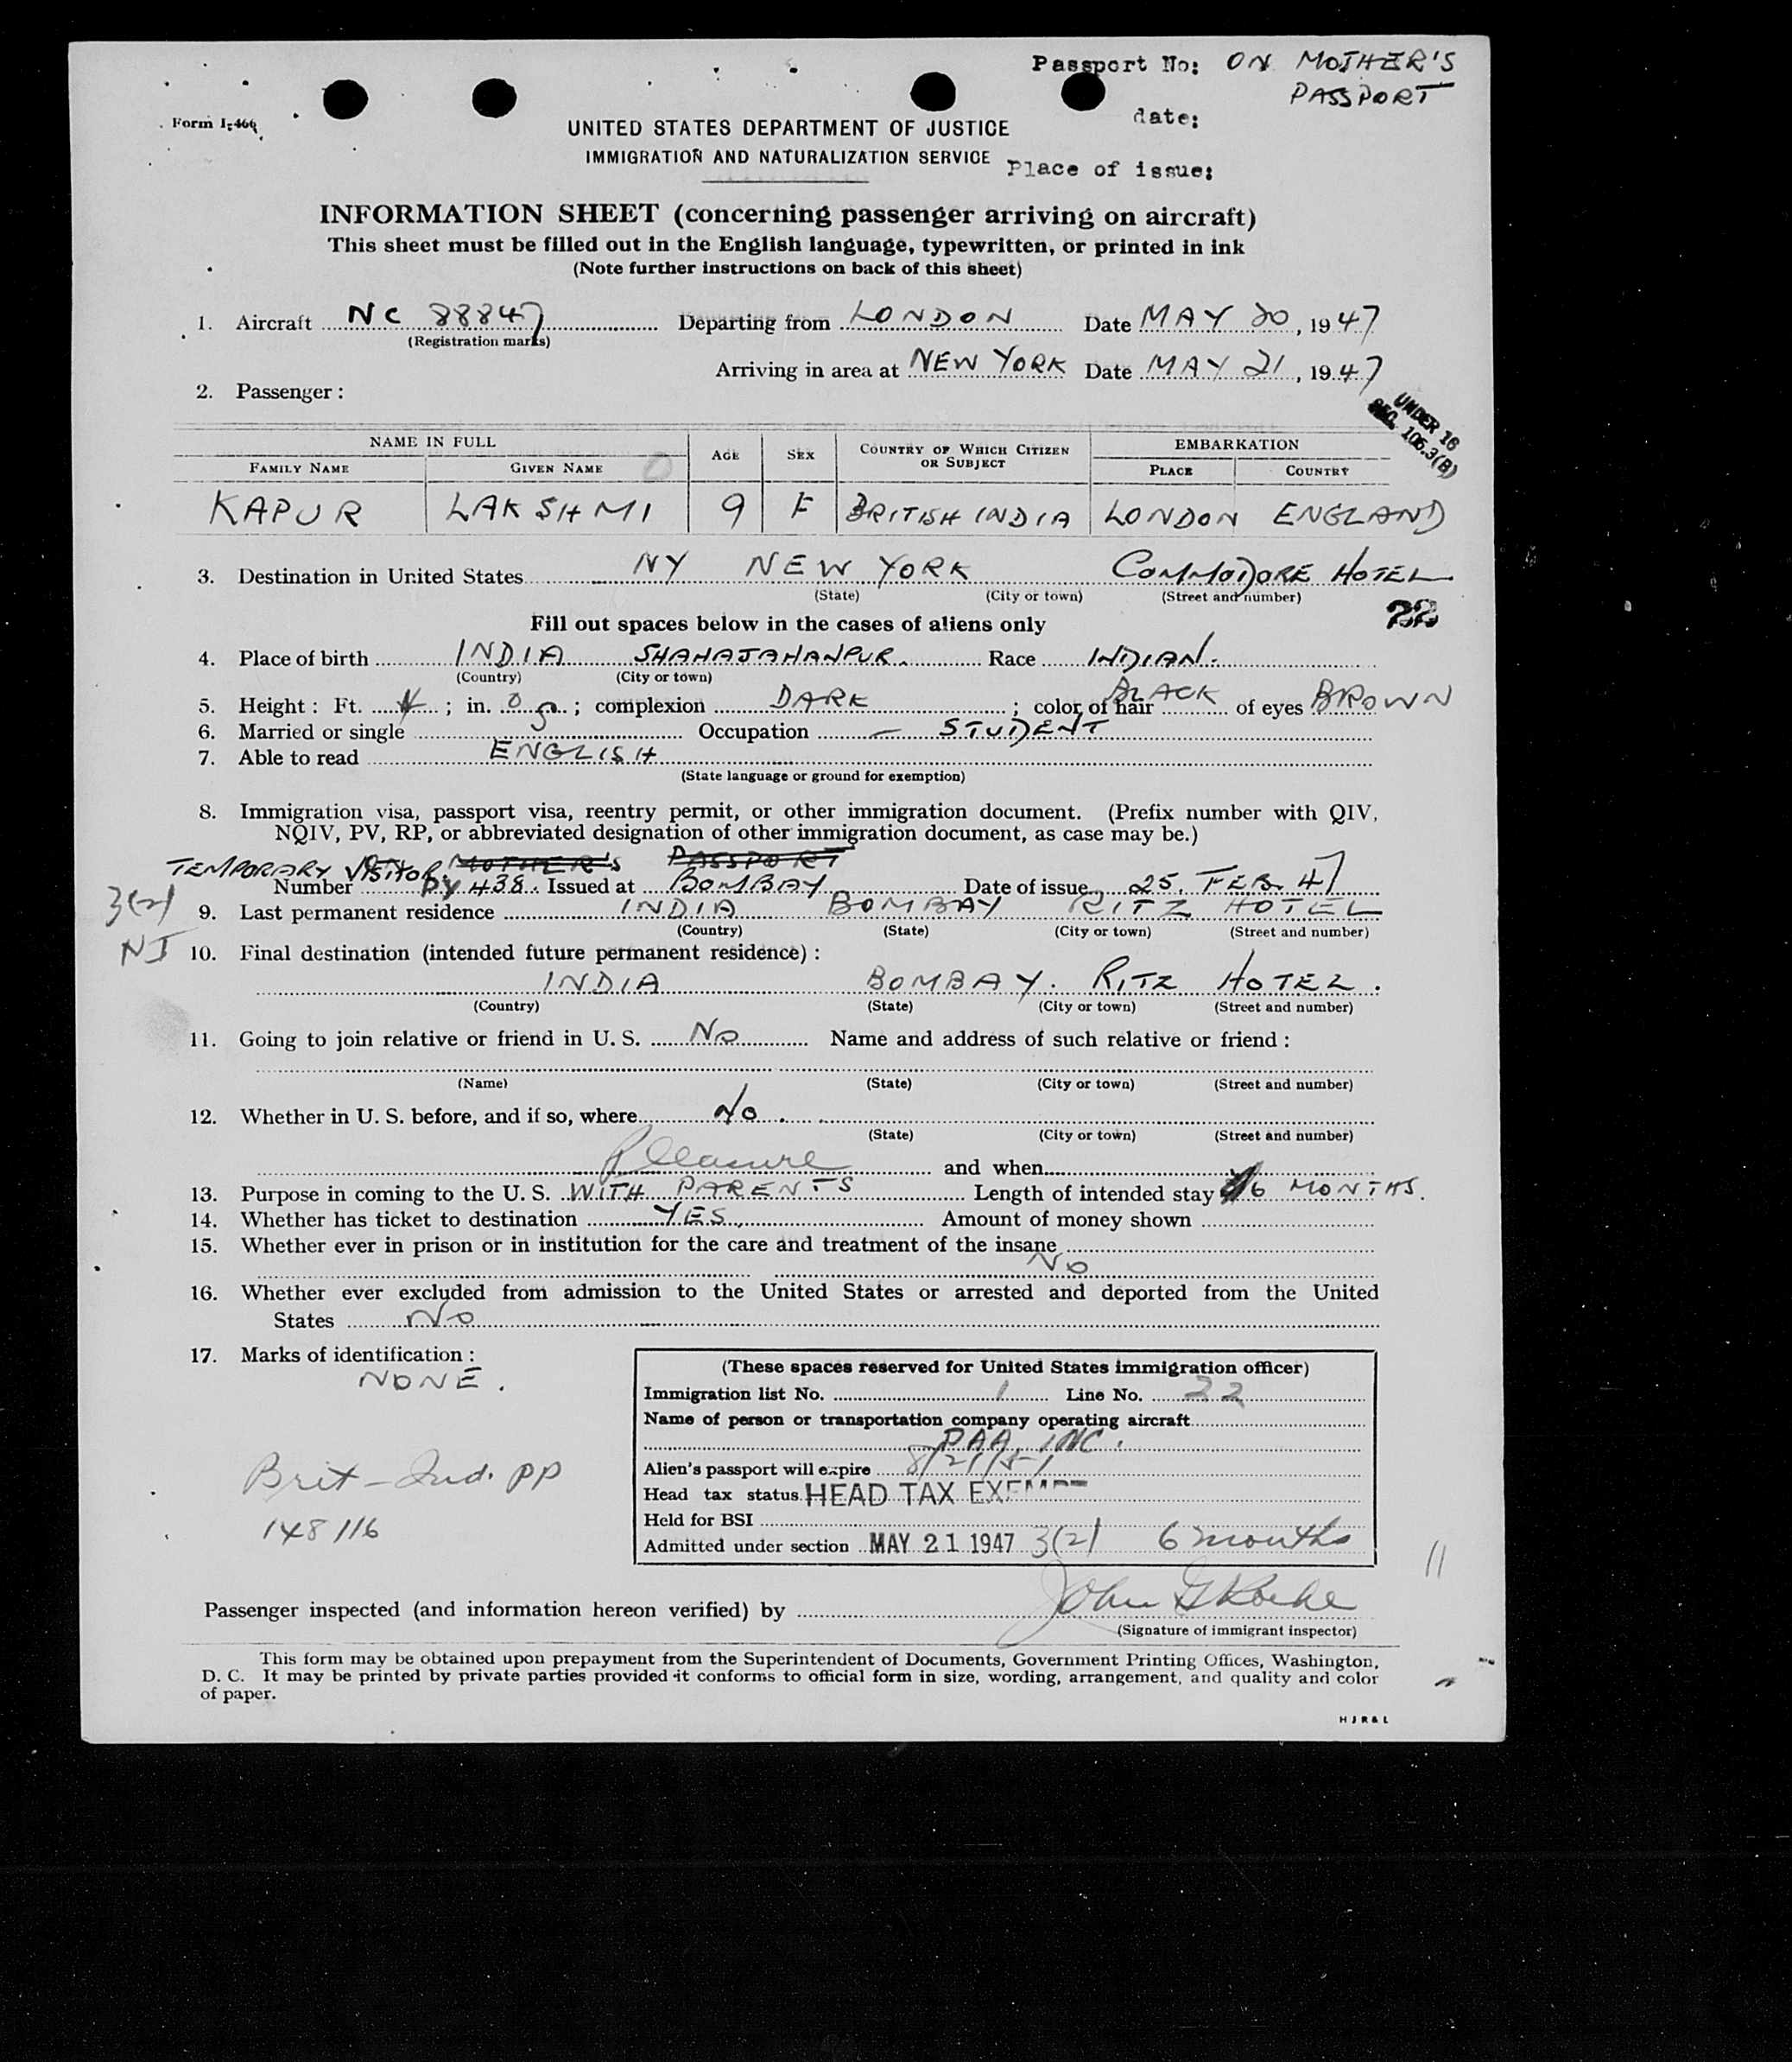 Passport No: ON MOTHER'S
PASSPORT
date:
Form I-466
UNITED STATES DEPARTMENT OF JUSTICE
IMMIGRATION AND NATURALIZATION SERVICE
Place of issue:
INFORMATION SHEET (concerning passenger arriving on aircraft)
This sheet must be filled out in the English language, typewritten, or printed in ink
(Note further instructions on back of this sheet)
1. Aircraft NC 88847 Departing from LONDON Date MAY 20, 1947
(Registration marks)
Arriving in area at NEW YORK Date MAY 21, 1947
2. Passenger:
UNDER 16
SEC. 106.3(B)
NAME IN FULL AGE SEX COUNTRY OF WHICH CITIZEN OR SUBJECT EMBARKATION
FAMILY NAME GIVEN NAME PLACE COUNTRY
KAPUR LAKSHMI 9 F BRITISH INDIA LONDON ENGLAND
3. Destination in United States NY NEW YORK COMMODORE HOTEL
(State) (City or town) (Street and number)
22
Fill out spaces below in the cases of aliens only
4. Place of birth INDIA SHAHAJAHANPUR. Race INDIAN.
(Country) (City or town)
5. Height: Ft. 4; in. 0; complexion DARK; color of hair BLACK of eyes BROWN
6. Married or single Occupation — STUDENT
7. Able to read ENGLISH
(State language or ground for exemption)
8. Immigration visa, passport visa, reentry permit, or other immigration document. (Prefix number with QIV,
NQIV, PV, RP, or abbreviated designation of other immigration document, as case may be.)
TEMPORARY VISITOR MOTHER'S PASSPORT
Number PV 438. Issued at BOMBAY Date of issue 25. FEB. 47
3(2)
9. Last permanent residence INDIA BOMBAY RITZ HOTEL
(Country) (State) (City or town) (Street and number)
NI
10. Final destination (intended future permanent residence):
INDIA BOMBAY. RITZ HOTEL.
(Country) (State) (City or town) (Street and number)
11. Going to join relative or friend in U. S. NO Name and address of such relative or friend:
(Name) (State) (City or town) (Street and number)
12. Whether in U. S. before, and if so, where NO.
(State) (City or town) (Street and number)
Pleasure and when
13. Purpose in coming to the U. S. WITH PARENTS Length of intended stay 6 MONTHS.
14. Whether has ticket to destination YES. Amount of money shown
15. Whether ever in prison or in institution for the care and treatment of the insane
NO
16. Whether ever excluded from admission to the United States or arrested and deported from the United
States NO
17. Marks of identification:
NONE.
(These spaces reserved for United States immigration officer)
Immigration list No. 1 Line No. 22
Name of person or transportation company operating aircraft
PAA, INC.
Alien's passport will expire 8/21/51
Head tax status HEAD TAX EXEMPT
Held for BSI
Admitted under section MAY 21 1947 3(2) 6 months
Brit-Ind. PP
148116
11
Passenger inspected (and information hereon verified) by
(Signature of immigrant inspector)
This form may be obtained upon prepayment from the Superintendent of Documents, Government Printing Offices, Washington,
D. C. It may be printed by private parties provided it conforms to official form in size, wording, arrangement, and quality and color
of paper.
H J R & L